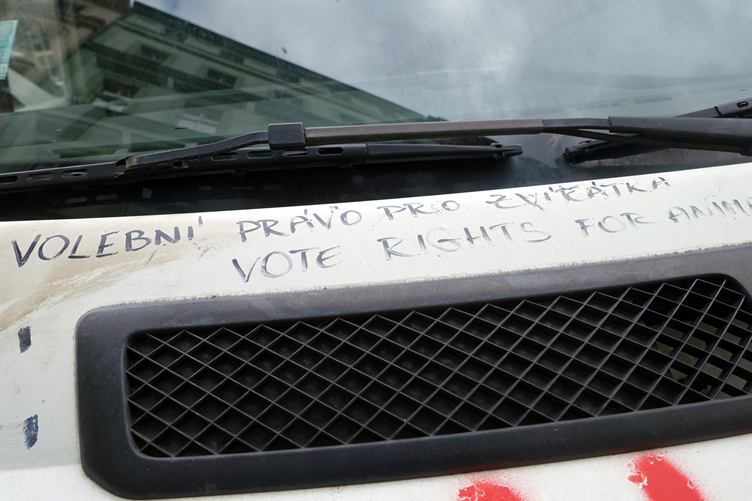 VOLEBNÍ PRÁVO PRO ZVÍŘÁTKA
VOTE RIGHTS FOR ANIMA